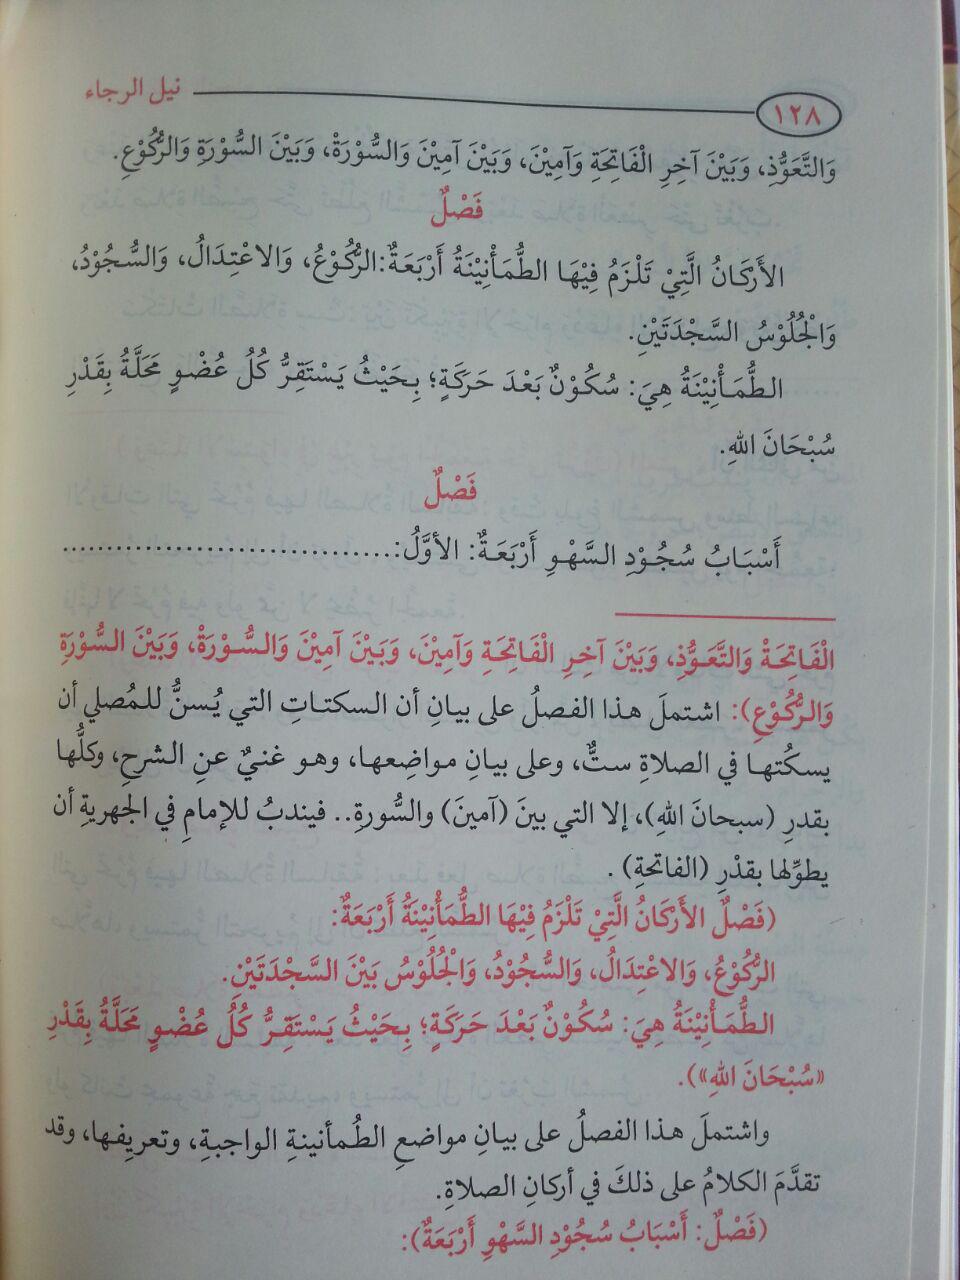 ١٢٨ نيل الرجاء
وَالتَّعَوُّذِ، وَبَيْنَ آخِرِ الْفَاتِحَةِ وَآمِيْنَ، وَبَيْنَ آمِيْنَ وَالسُّوْرَةْ، وَبَيْنَ السُّوْرَةِ وَالرُّكُوْعِ.
فَصْلٌ
الأَرْكَانُ الَّتِيْ تَلْزَمُ فِيْهَا الطُّمَأْنِيْنَةُ أَرْبَعَةٌ:الرُّكُوْعُ، وَالاعْتِدَالُ، وَالسُّجُوْدُ،
وَالْجُلُوْسُ السَّجْدَتَيْنِ.
الطُّمَأْنِيْنَةُ هِيَ: سُكُوْنٌ بَعْدَ حَرَكَةٍ؛ بِحَيْثُ يَسْتَقِرُّ كُلُ عُضْوٍ مَحَلَّهُ بِقَدْرِ
سُبْحَانَ اللهِ.
فَصْلٌ
أَسْبَابُ سُجُوْدِ السَّهْوِ أَرْبَعَةٌ: الأَوَّلُ:......................................
الْفَاتِحَةْ وَالتَّعَوُّذِ، وَبَيْنَ آخِرِ الْفَاتِحَةِ وَآمِيْنَ، وَبَيْنَ آمِيْنَ وَالسُّوْرَةْ، وَبَيْنَ السُّوْرَةِ
وَالرُّكُوْعِ): اشتملَ هذا الفصلُ على بيانِ أن السكتاتِ التي يُسنُّ للمُصلي أن
يسكُتها في الصلاةِ ستٌّ، وعلى بيانِ مواضِعها، وهو غنيٌ عنِ الشرحِ، وكلُّها
بقدرِ (سبحانَ اللهِ)، إلا التي بينَ (آمينَ) والسُّورةِ.. فيندبُ للإمامِ في الجهريةِ أن
يطوِّلها بقدْرِ (الفاتحةِ) .
(فَصْلٌ الأَرْكَانُ الَّتِيْ تَلْزَمُ فِيْهَا الطُّمَأْنِيْنَةُ أَرْبَعَةٌ:
الرُّكُوْعُ، وَالاعْتِدَالُ، وَالسُّجُوْدُ، وَالْجُلُوْسُ بَيْنَ السَّجْدَتَيْنِ.
الطُّمَأْنِيْنَةُ هِيَ: سُكُوْنٌ بَعْدَ حَرَكَةٍ؛ بِحَيْثُ يَسْتَقِرُّ كُلُ عُضْوٍ مَحَلَّهُ بِقَدْرِ
«سُبْحَانَ اللهِ»).
واشتملَ هذا الفصلُ على بيانِ مواضعِ الطُمأنينةِ الواجبةِ، وتعريفِها، وقد
تقدَّمَ الكلامُ على ذلكَ في أركانِ الصلاةِ.
(فَصْلٌ: أَسْبَابُ سُجُوْدِ السَّهْوِ أَرْبَعَةٌ):